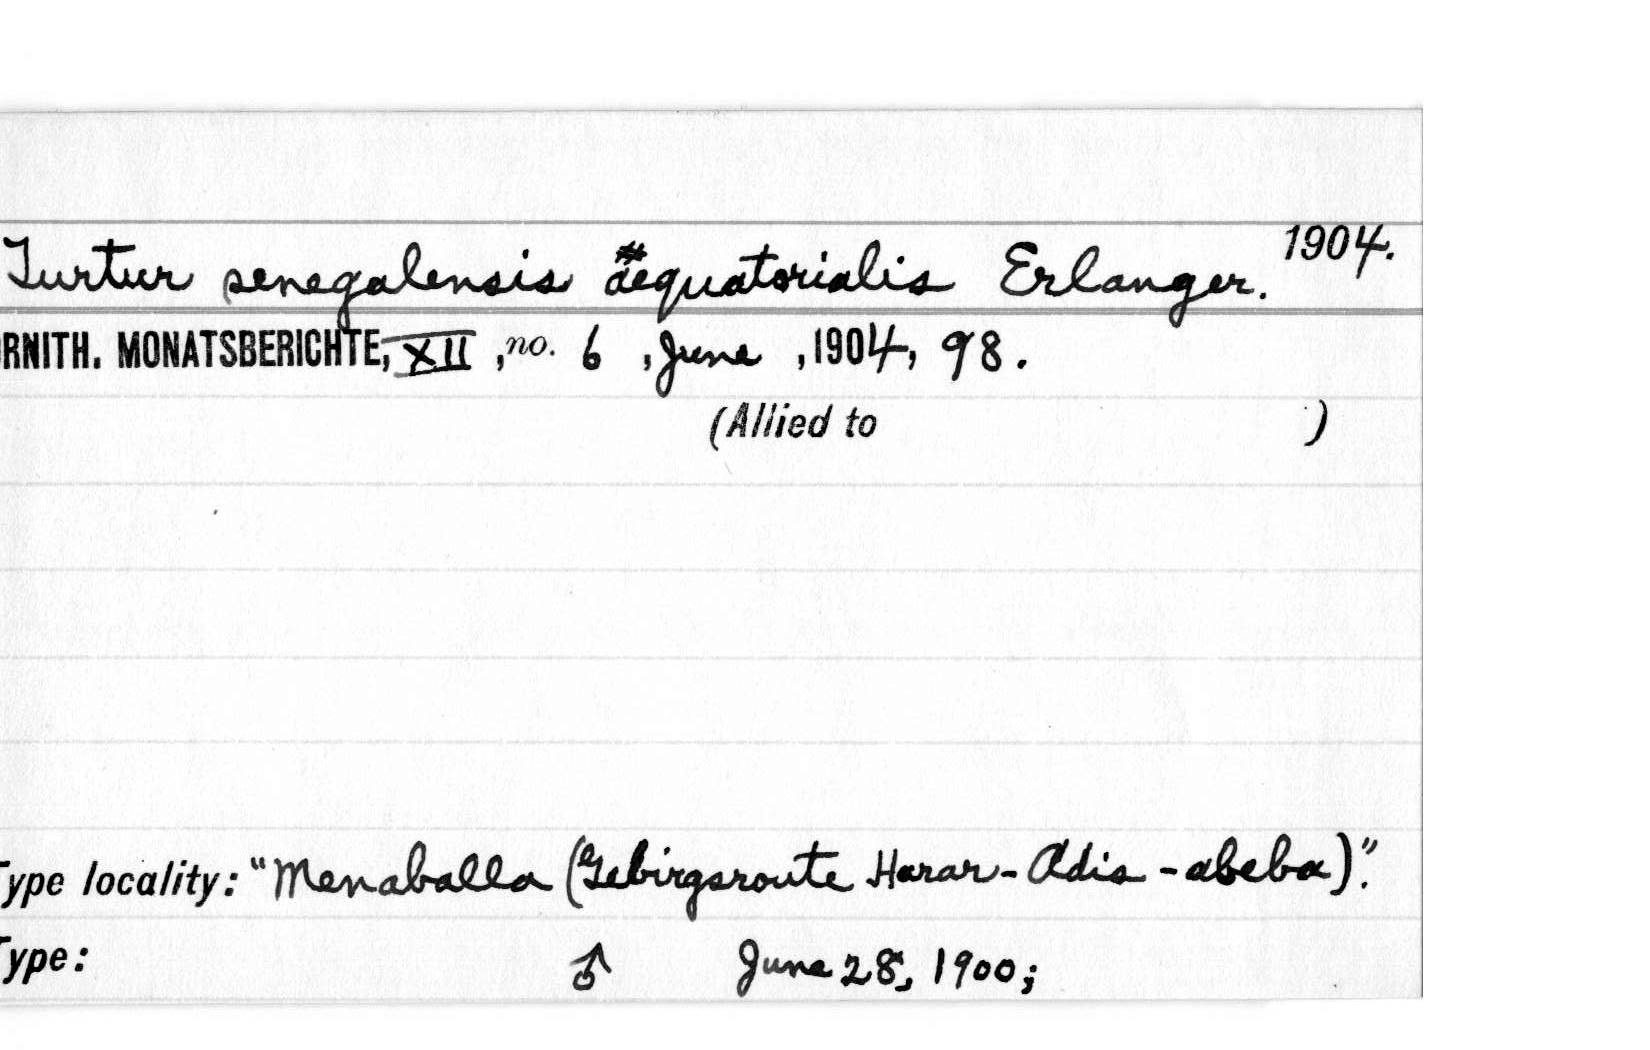 Turtur senegalensis aequatorialis Erlanger. 1904.
RNITH. MONATSBERICHTE, XII, no. 6, June, 1904, 98.
(Allied to )
Type locality: "Menaballa (Gebirgsroute Harar-Adis-abeba)."
Type: ♂ June 28, 1900;